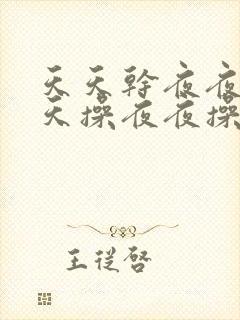 天天幹夜夜
天操夜夜操
王從啓